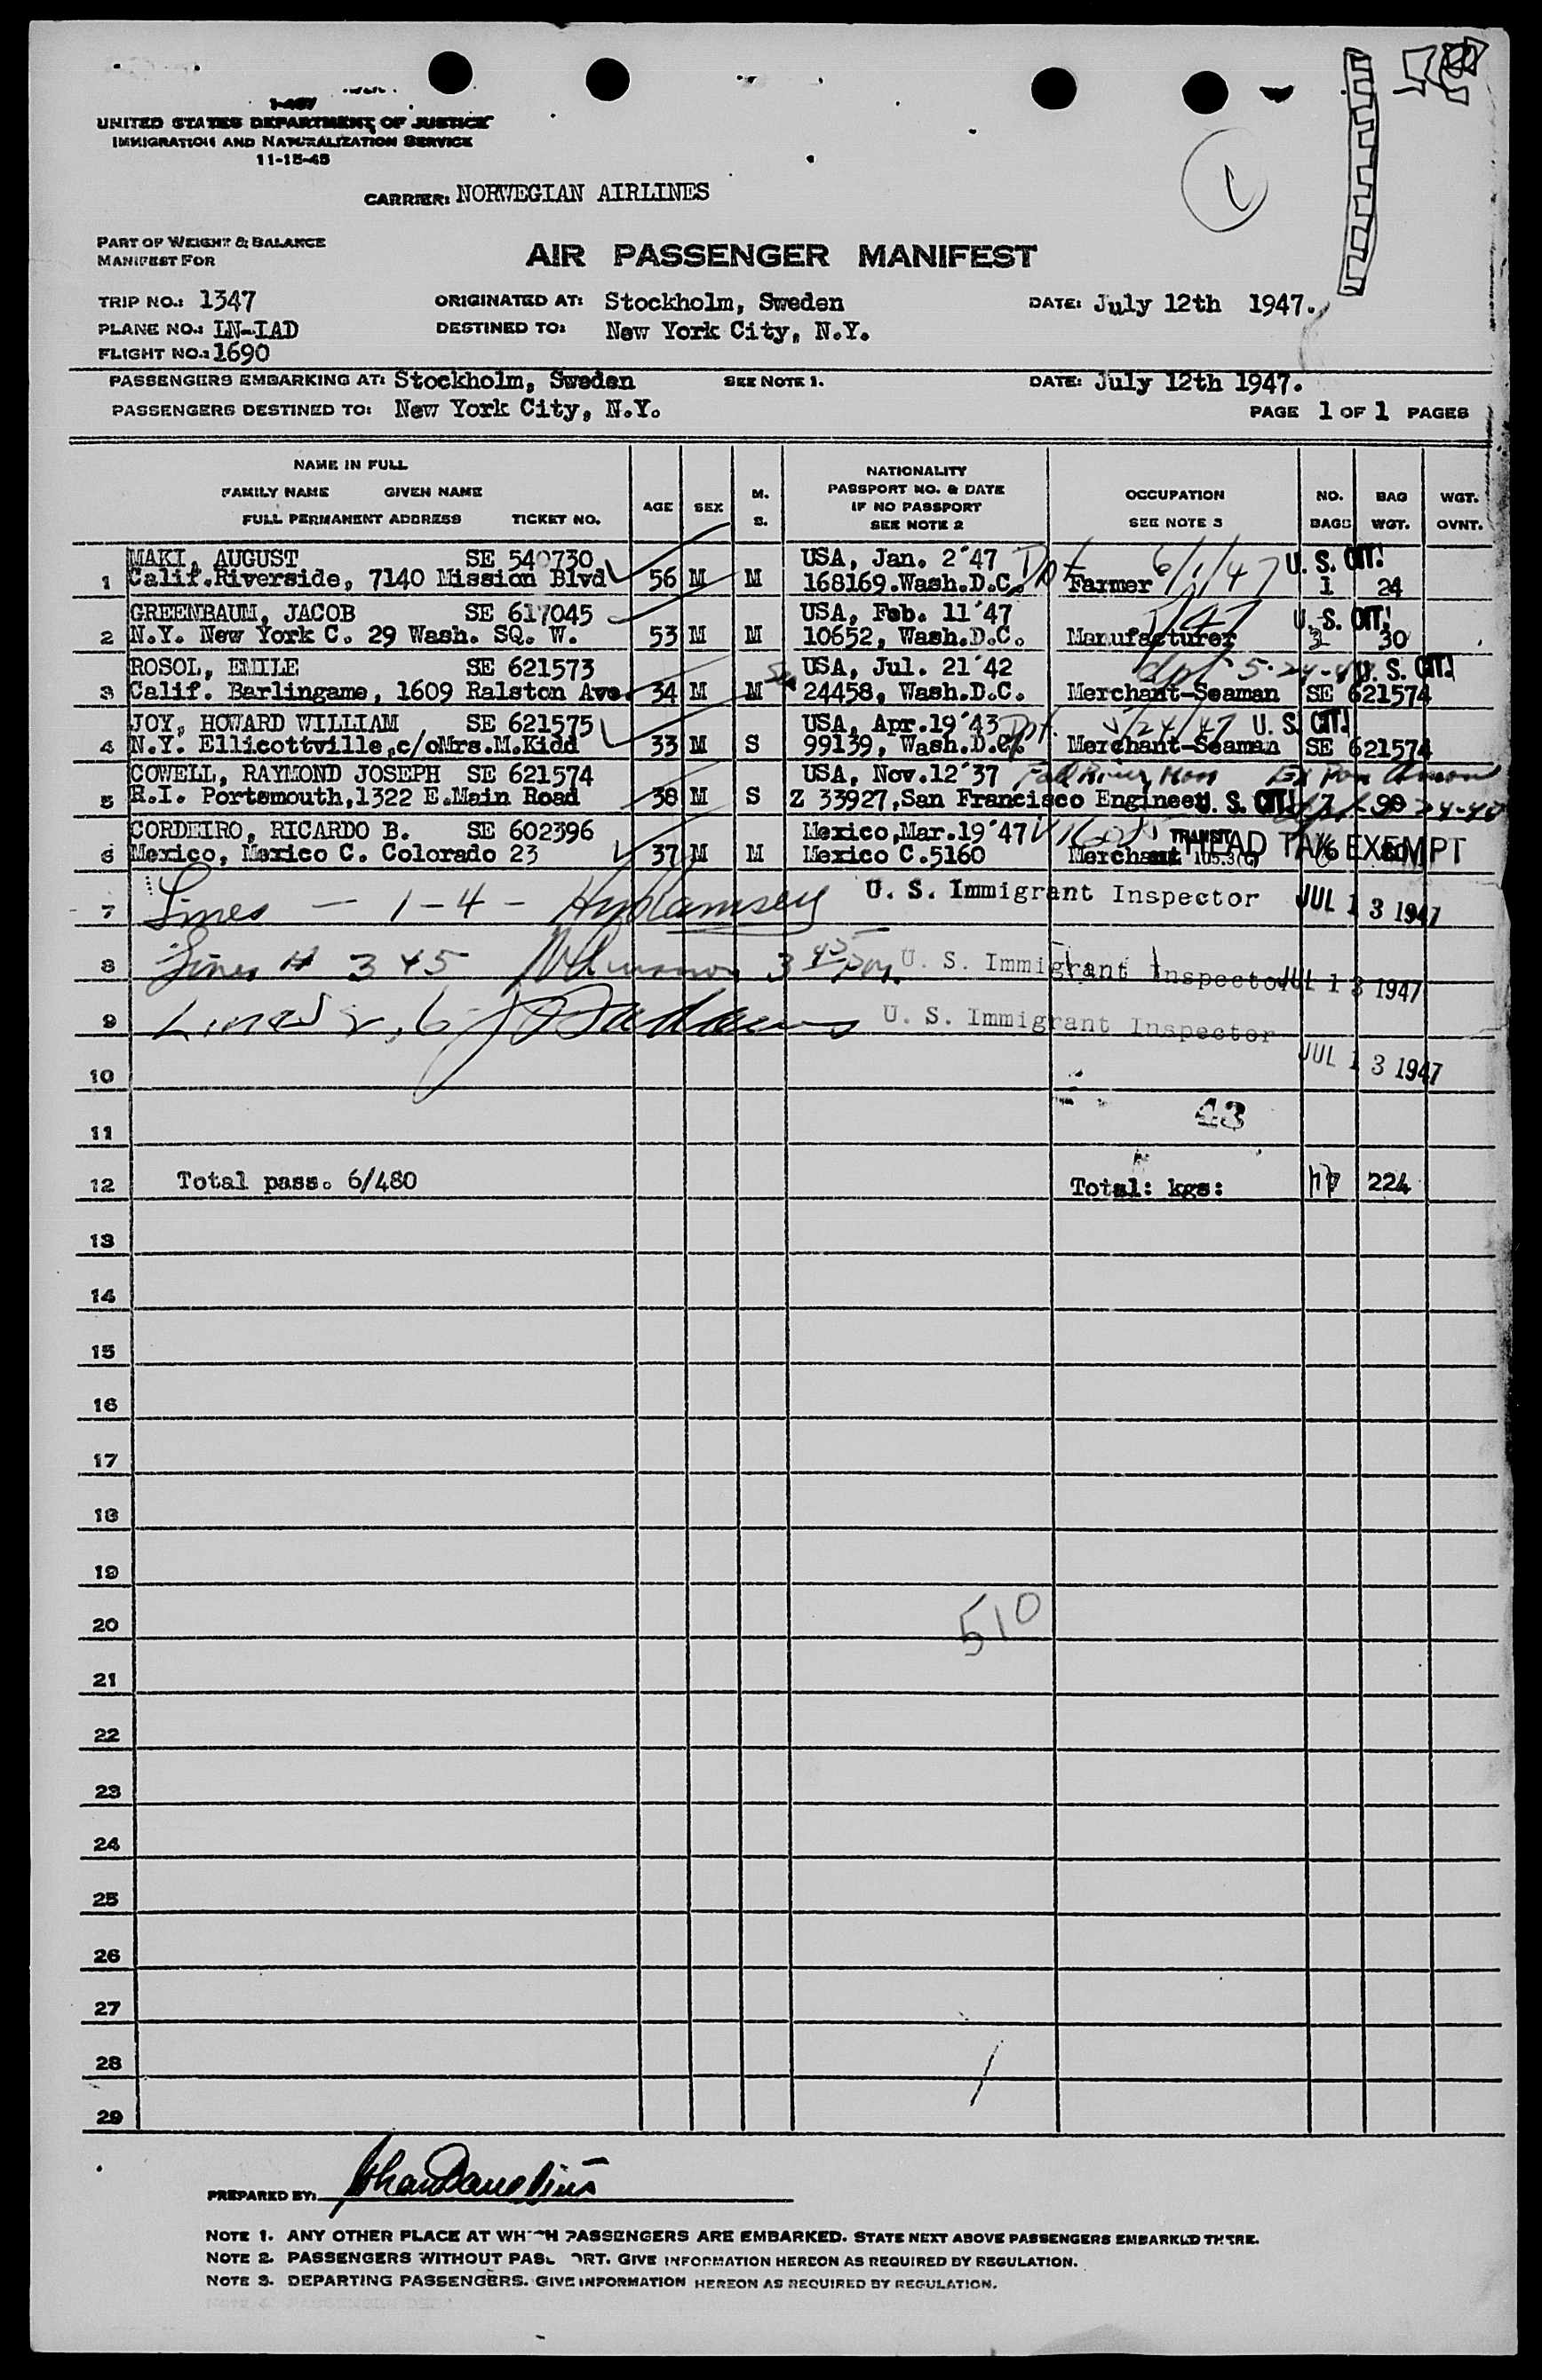 1-467
UNITED STATES DEPARTMENT OF JUSTICE
IMMIGRATION AND NATURALIZATION SERVICE
11-15-45
CARRIER: NORWEGIAN AIRLINES
1
PART OF WEIGHT & BALANCE
MANIFEST FOR
AIR PASSENGER MANIFEST
TRIP NO.: 1347 ORIGINATED AT: Stockholm, Sweden DATE: July 12th 1947.
PLANE NO.: LN-IAD DESTINED TO: New York City, N.Y.
FLIGHT NO.: 1690
PASSENGERS EMBARKING AT: Stockholm, Sweden SEE NOTE 1. DATE: July 12th 1947.
PASSENGERS DESTINED TO: New York City, N.Y. PAGE 1 OF 1 PAGES
NAME IN FULL
FAMILY NAME GIVEN NAME
FULL PERMANENT ADDRESS TICKET NO.
AGE SEX M. S.
NATIONALITY
PASSPORT NO. & DATE
IF NO PASSPORT
SEE NOTE 2
OCCUPATION
SEE NOTE 3
NO. BAGS BAG WGT. WGT. OVNT.
MAKI, AUGUST SE 540730 USA, Jan. 2'47 Dpt 6/1/47 U. S. CIT.
1 Calif.Riverside, 7140 Mission Blvd 56 M M 168169.Wash.D.C. Farmer 1 24
GREENBAUM, JACOB SE 617045 USA, Feb. 11'47 U. S. CIT.
2 N.Y. New York C. 29 Wash. SQ. W. 53 M M 10652, Wash.D.C. Manufacturer 3 30
ROSOL, EMILE SE 621573 USA, Jul. 21'42 dpt 5-24-47 U. S. CIT.
3 Calif. Barlingame, 1609 Ralston Ave. 34 M M 24458, Wash.D.C. Merchant-Seaman SE 621574
JOY, HOWARD WILLIAM SE 621575 USA, Apr.19'43 Dpt. 5/24/47 U. S. CIT.
4 N.Y. Ellicottville,c/oMrs.M.Kidd 33 M S 99139, Wash.D.C. Merchant-Seaman SE 621574
COWELL, RAYMOND JOSEPH SE 621574 USA, Nov.12'37 Fall River, Mass Ex Pan Amer
5 R.I. Portsmouth,1322 E.Main Road 38 M S Z 33927,San Francisco Engineer U. S. CIT. 7 90
CORDEIRO, RICARDO B. SE 602396 Mexico,Mar.19'47 TRANSIT HEAD TAX EXEMPT
6 Mexico, Mexico C. Colorado 23 37 M M Mexico C.5160 Merchant 105.3(c) 80
7 Lines — 1-4 - Ramsey U. S. Immigrant Inspector JUL 13 1947
8 Lines # 3 45 U. S. Immigrant Inspector JUL 13 1947
9 Lines 2, 6 U. S. Immigrant Inspector
10 JUL 13 1947
43
11
12 Total pass. 6/480 Total: kgs: 17 224
13
14
15
16
17
18
19
20 510
21
22
23
24
25
26
27
28
29
PREPARED BY:
NOTE 1. ANY OTHER PLACE AT WHICH PASSENGERS ARE EMBARKED. STATE NEXT ABOVE PASSENGERS EMBARKED THERE.
NOTE 2. PASSENGERS WITHOUT PASSPORT. GIVE INFORMATION HEREON AS REQUIRED BY REGULATION.
NOTE 3. DEPARTING PASSENGERS. GIVE INFORMATION HEREON AS REQUIRED BY REGULATION.